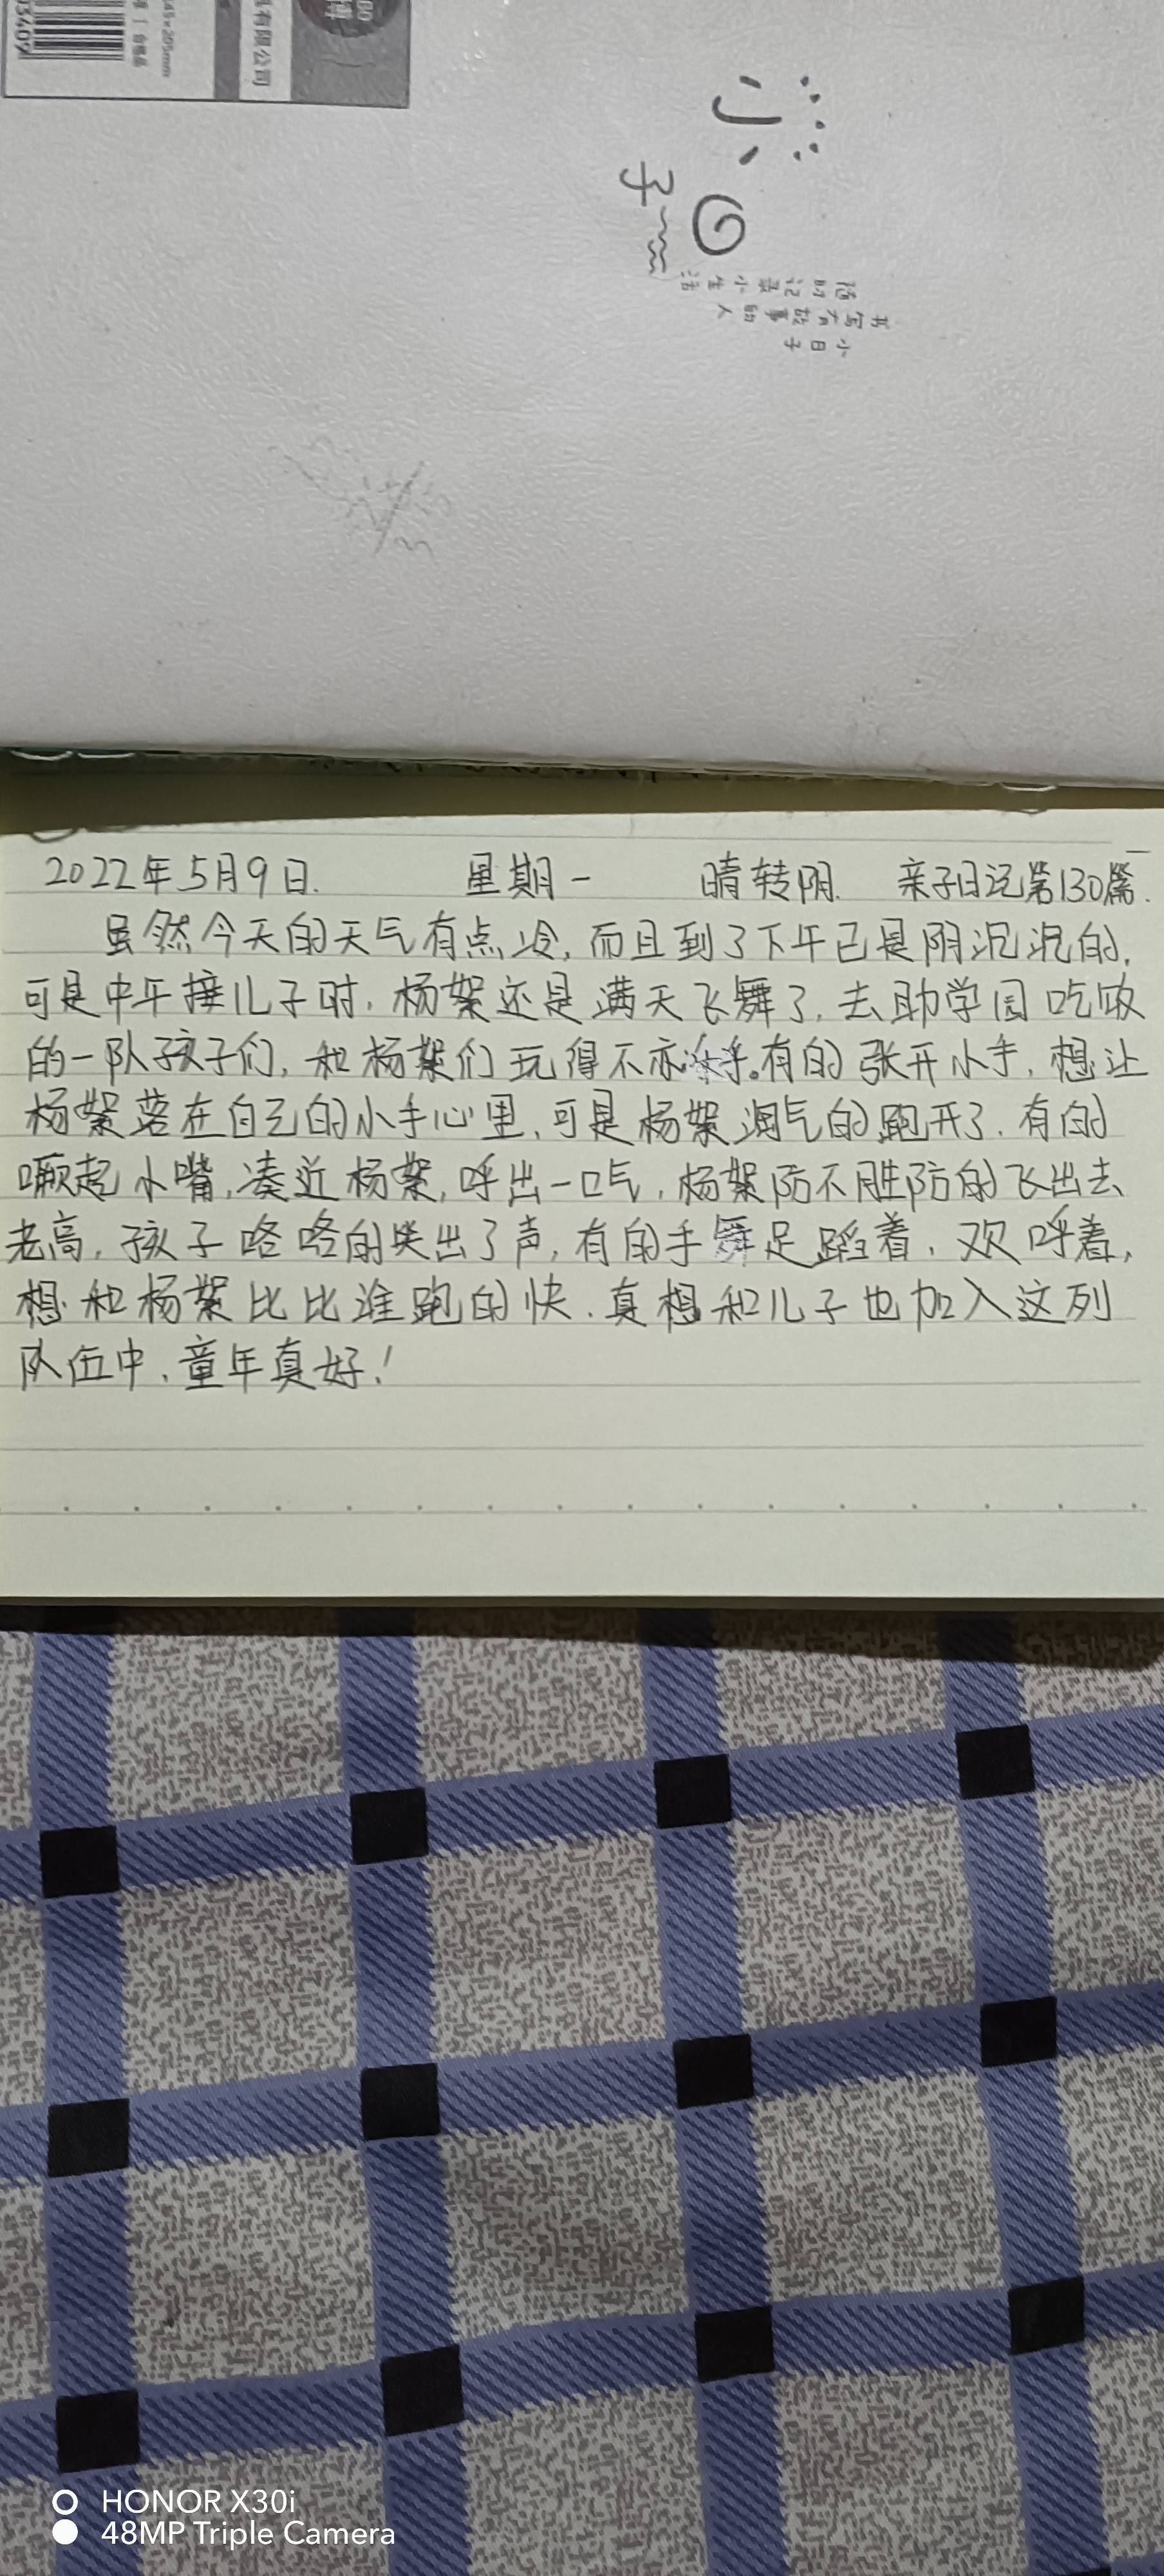 03409
145×205mm
合格品
有限公司
小
日
子
随时记录小生活
书写有故事的人
小日子
2022年5月9日. 星期一 晴转阴. 亲子日记第130篇.
虽然今天的天气有点冷,而且到了下午已是阴沉沉的,
可是中午接儿子时,杨絮还是满天飞舞了,去助学园吃饭
的一队孩子们,和杨絮们玩得不亦乐乎。有的张开小手,想让
杨絮落在自己的小手心里,可是杨絮淘气的跑开了,有的
噘起小嘴,凑近杨絮,呼出一口气,杨絮防不胜防的飞出去
老高,孩子咯咯的笑出了声,有的手舞足蹈着,欢呼着,
想和杨絮比比谁跑的快.真想和儿子也加入这列
队伍中,童年真好!
HONOR X30i
48MP Triple Camera